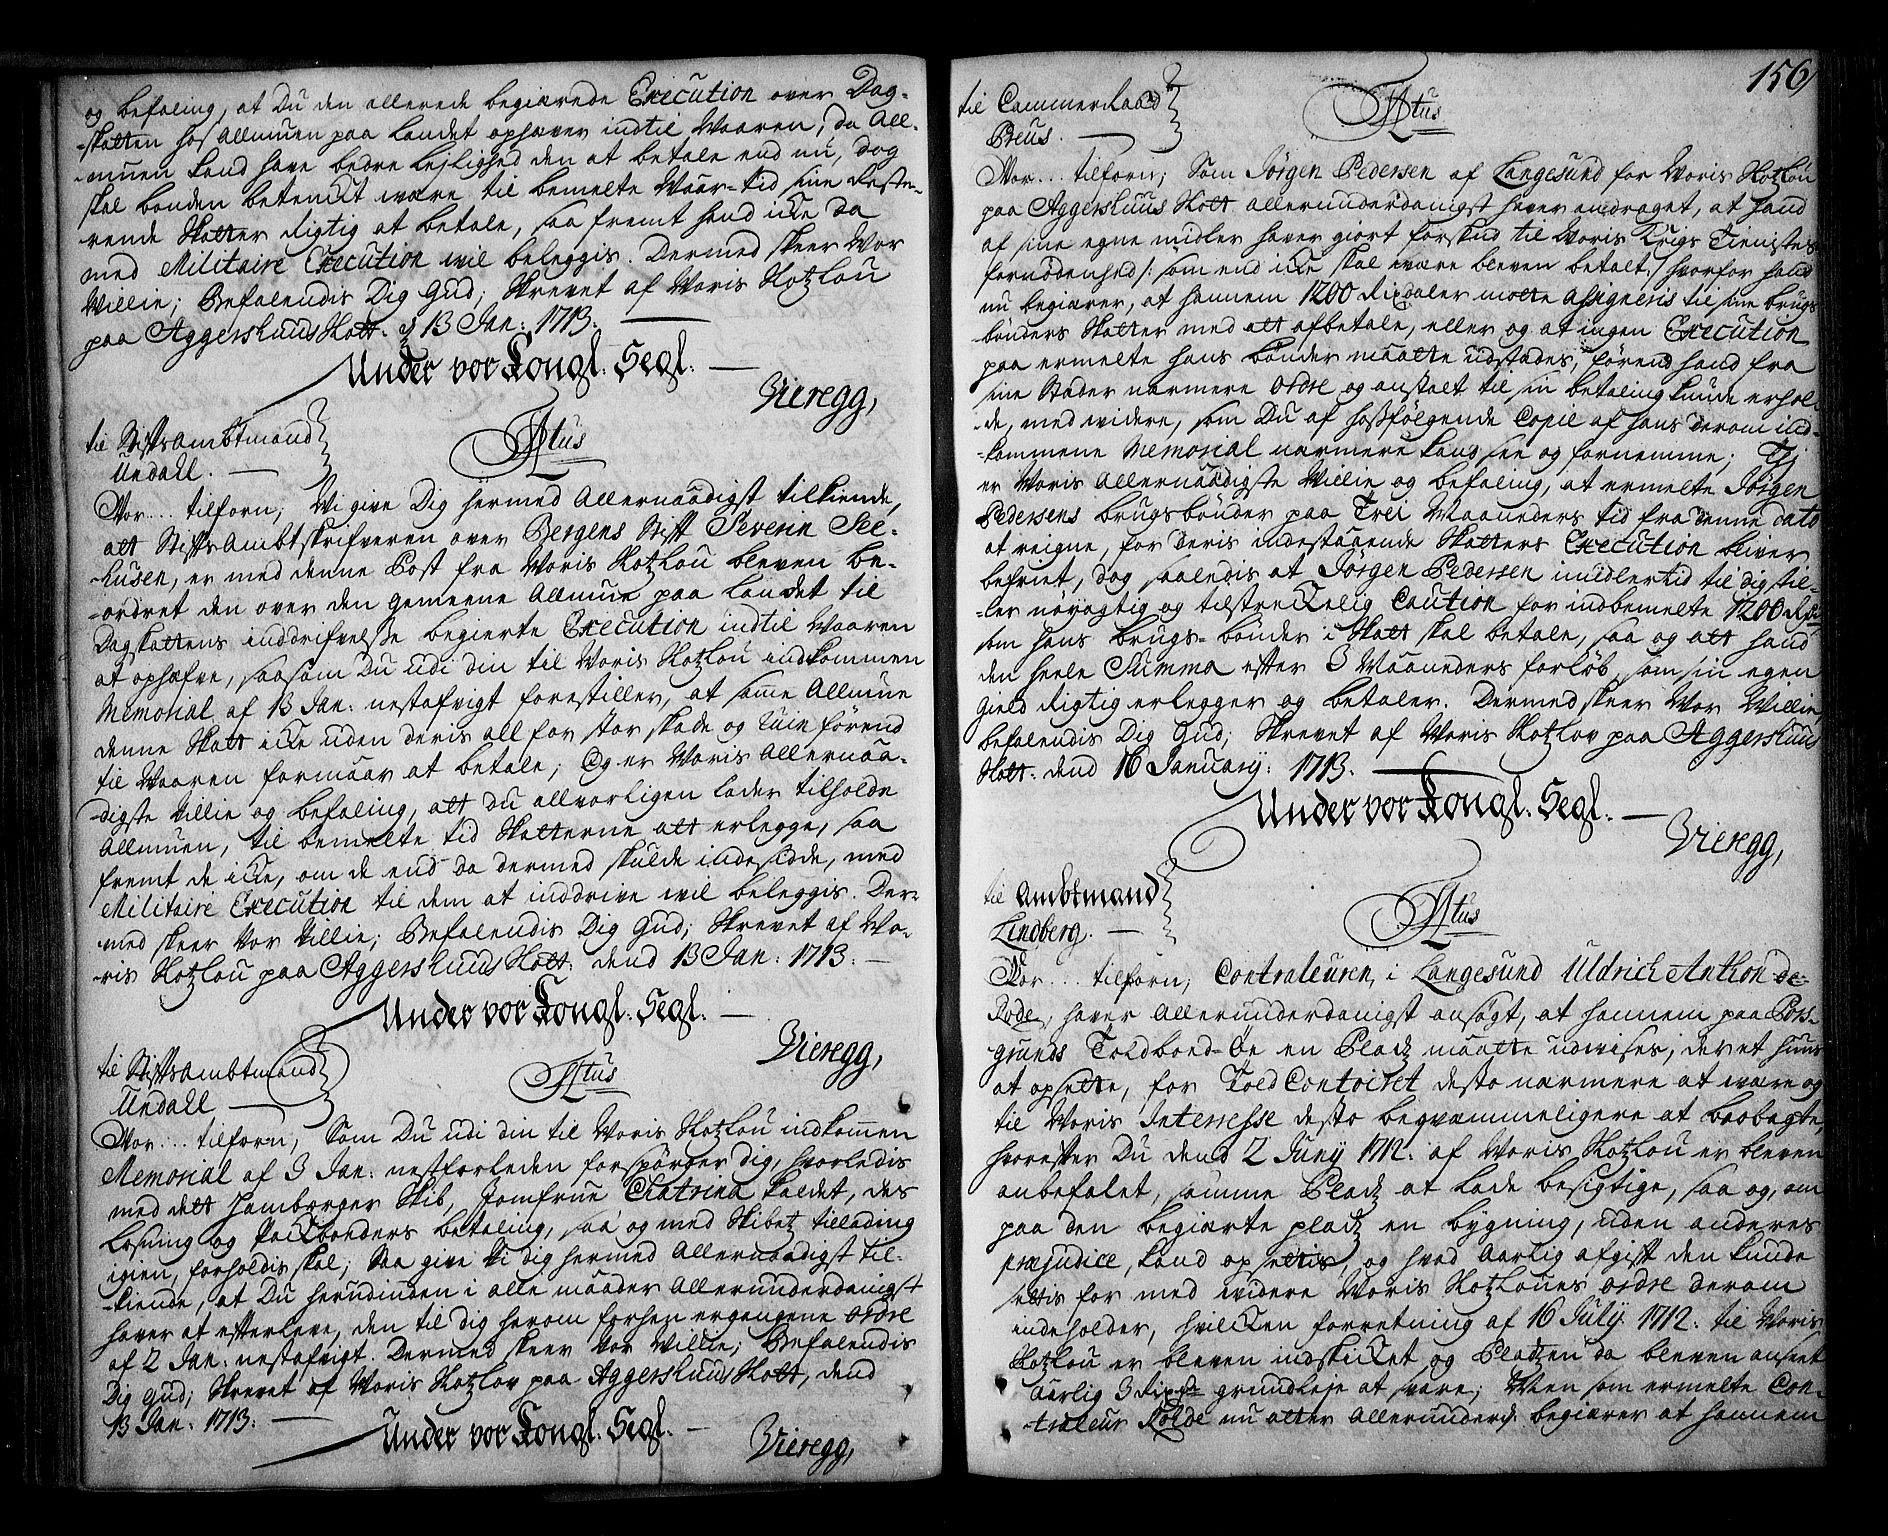 og befaling, at Du den allerede begierede Execution over Dag-
-skatten hos Allmuen paa Landet ophæver indtil Waaren, da All-
-muen kand have bedre lejlighed den at betale end nu, dog
skal bonden betenckt være til bemelte Waar-tid sine Reste-
rende Skatter rigtig at betale, saa fremt hand icke da
med Militaire Execution vil beleggis. Dermed skeer Vor
Villie; Befalendis Dig Gud; Skrevet af Woris Slotzlou
paa Aggershuus Slott. d. 13 Jan: 1713.
Under vor Kongl. Segl.
Vieregg,
til Stiftsambtmand
Undall.
Fr: 4tus
Vor... tilforn; Wi give Dig hermed Allernaadigst tilkiende,
att Stiftsambtskrifveren over Bergens Stift Severin See-
-husen, er med denne Post fra Woris Slotzlou bleven be-
-ordret den over den gemeene Allmue paa Landet til
Dagskattens inddrifvelse begierte Execution indtil Waaren
at ophæfve, saasom Du udi din til Woris Slotzlou indkommen
Memorial af 13 Jan: nestafvigt forestiller, at samme Allmue
denne Skatt icke uden deris all for stor skade og Ruin førend
til Waaren formaar at betale; Og er Woris Allernaa-
-digste Villie og befaling, att du allvorligen lader tilholde
Allmuen, til bemelte tid Skatterne att erlegge, saa
fremt de icke, om de end da dermed skulde indesidde, med
Militaire Execution til dem at inddrive vil beleggis. Der-
-med skeer Vor Villie; Befalendis Dig Gud; Skrevet af Wo-
-ris Slotzlou paa Aggershuus Slott. dend 13 Jan: 1713.
Under vor Kongl. Segl.
Vieregg,
til Stiftsambtmand
Undall
Fr: 4tus
Vor... tilforn; Som Du udi din til Woris Slotzlou indkommen
Memorial af 3 Jan: nestforleden forspørger dig, hvorledis
med dett Hamborger Skib, Jomfrue Chatrina kaldet, des
Losning og Packboeders betaling, saa og med Skibetz tillading
igien, forholdis skal; Saa give Vi dig hermed Allernaadigst til-
-kiende, at Du herudinden i alle maader Allerunderdanigst
haver at efterleve, den til dig herom forhen ergangene Ordre
af 2 Jan: nestafvigt. Dermed skeer Vor Villie; Befalendis
Dig Gud; Skrevet af Woris Slotzlov paa Aggershuus Slott, dend
13 Jan: 1713.
Under vor Kongl. Segl.
Vieregg,
156
til Cammerraad
Preus.
Fr: 4tus
Vor... tilforn; Som Jørgen Pedersen af Langesund for Woris Slotzlou
paa Aggershuus Slott allerunderdanigst haver andraget, at hand
af sine egne midler haver giort forskud til Woris Krigs Tienistes
fornødenhed /: som end icke skal være bleven betalt :/ hvorfor hand
nu begiærer, at hannem 1200 Rixdaler motte assigneris til sine brugs
bønders Skatter med att afbetale, eller og at ingen Execution
paa ermelte hans bønder maatte udstædes, førend hand fra
sine Stæder nærmere Ordre og anstalt til sin betaling kunde erhol-
-de, med videre, som Du af hosfølgende Copie af hans derom ind-
-kommene Memorial nærmere kand see og fornemme; Thi
er Woris Allernaadigste Villie og befaling, at ermelte Jørgen
Pedersens brugsbønder paa Trei Maaneders tid fra denne dato
at reigne, for deris indestaaende Skatters Execution bliver
befriet, dog saaledis at Jørgen Pedersen imidlertid til dig stil-
-ler nøyagtig og tilstreckelig Caution for indbemelte 1200 Rdr
som hans brugs-bønder i Skatt skal betale, saa og att hand
den heele Summa efter 3 Maaneders forløb som sin egen
gield rigtig erlegger og betaler. Dermed skeer Vor Villie,
befalendis Dig Gud; Skrevet af Woris Slotzlov paa Aggershuus
Slott. dend 16 January: 1713.
Under vor Kongl. Segl.
Vieregg,
til Ambtmand
Lindberg.
Fr: 4tus
Vor... tilforn; Contraleuren i Langesund Uldrich Anthon de
Rode, haver Allerunderdanigst ansøgt, at hannem paa Pors-
grunds Toldboed-Øe en Pladz maatte udvises, der et huus
at opsette, for Told Contoiret desto nærmere at være og
til Woris Interresse desto beqvæmmeligere at beobagte,
hvorefter Du dend 2 Juny 1712. af Woris Slotzlou er bleven
anbefalet, samme Pladz at lade besigtige, saa og, om
paa den begiærte pladz en bygning, uden anderes
præjudice, kand opsettis, og hvad Aarlig afgift den kunde
settis for med videre Woris Slotzloues Ordre derom
indeholder, hvilcken forretning af 16 July 1712. til Woris
Slotzlou er bleven indskicket og Pladzen da bleven anseet
aarlig 3 Rixdr grundleje at svare; Men som ermelte Con-
-traleur Rolde nu atter Allerunderd: begiærer at hannem